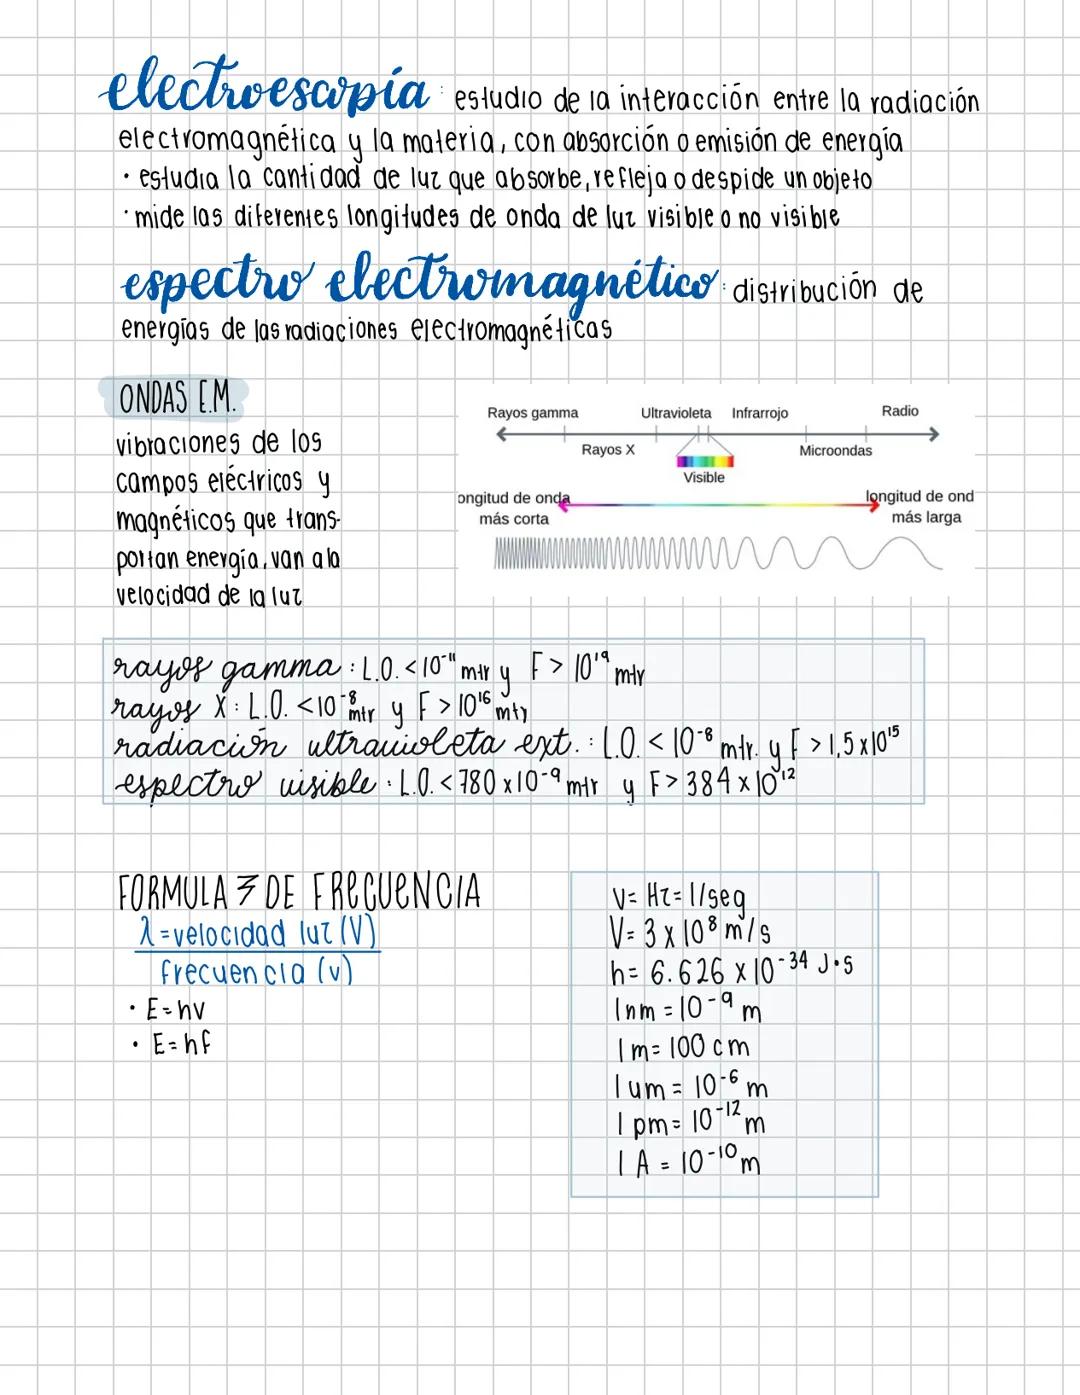 electroescopía: estudio de la interacción entre la radiación
electromagnética y la materia, con absorción o emisión de energía
• estudia la cantidad de luz que absorbe, refleja o despide un objeto
• mide las diferentes longitudes de onda de luz visible o no visible
espectro electromagnético: distribución de
energías de las radiaciones electromagnéticas
ONDAS E.M.
vibraciones de los
campos eléctricos y
magnéticos que trans-
portan energía, van a la
velocidad de la luz
Rayos gamma Ultravioleta Infrarrojo Radio
Rayos X Microondas
Visible
ongitud de onda longitud de ond
más corta más larga
rayos gamma: L.O. < 10⁻¹¹ mtr y F > 10¹⁹ mtr
rayos X: L.O. < 10⁻⁸ mtr y F > 10¹⁶ mtr
radiación ultravioleta ext.: L.O. < 10⁻⁸ mtr. y F > 1,5 x 10¹⁵
espectro visible: L.O. < 780 x 10⁻⁹ mtr y F > 384 x 10¹²
FORMULA DE FRECUENCIA
λ = velocidad luz (V)
frecuencia (v)
• E = hv
• E = hf
V = Hz = 1/seg
V = 3 x 10⁸ m/s
h = 6.626 x 10⁻³⁴ J•s
1 nm = 10⁻⁹ m
1 m = 100 cm
1 um = 10⁻⁶ m
1 pm = 10⁻¹² m
1 A = 10⁻¹⁰ m